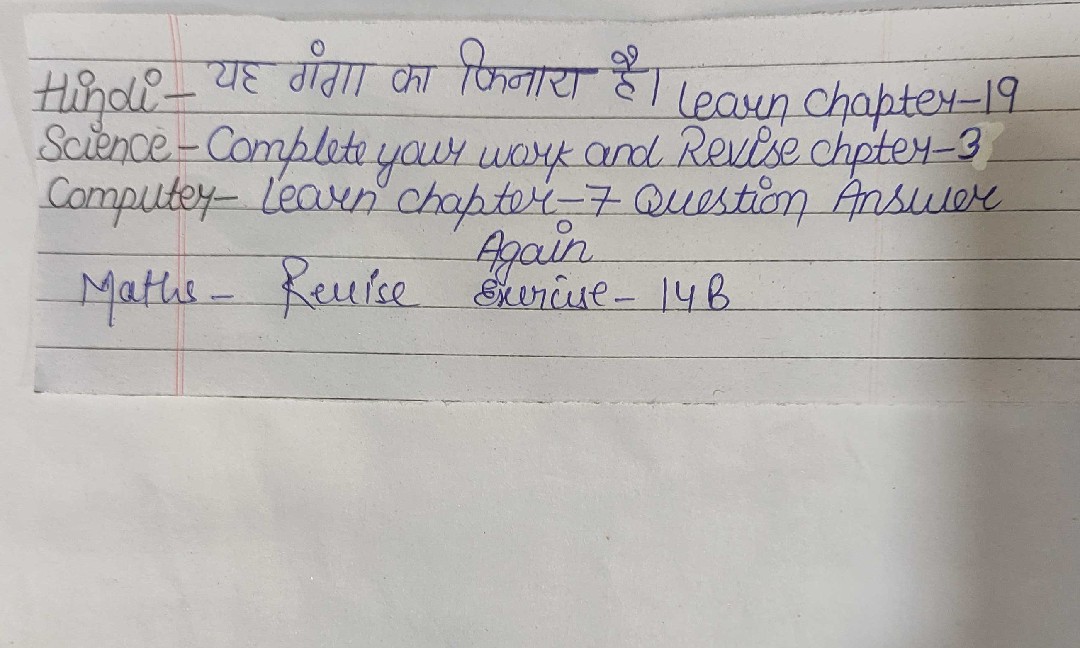 Hindi- यह गंगा का किनारा है। Learn Chapter-19
Science-Complete your work and Revise chpter-3
Computer- Learn chapter-7 Question Answer
Again
Maths- Revise Exercise- 14B